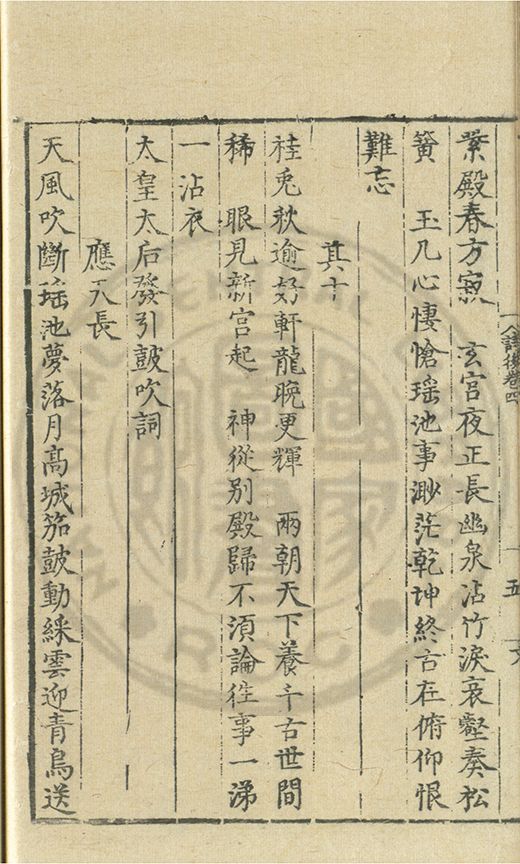 業殿春方寂 玄宮夜正長幽泉沾竹淚哀壑奏松
簧 玉几心悽愴瑶池事渺茫乾坤終古在俯仰恨
難忘
其十
桂兎秋逾好軒龍晚更輝 兩朝天下養千古世間
稀 眼見新宮起 神從别殿歸不須論徃事一涕
一沾衣
太皇太后發引鼓吹詞
應天長
天風吹斷瑶池夢落月高城笳鼓動綵雲迎青鳥送
詩後卷四
十五